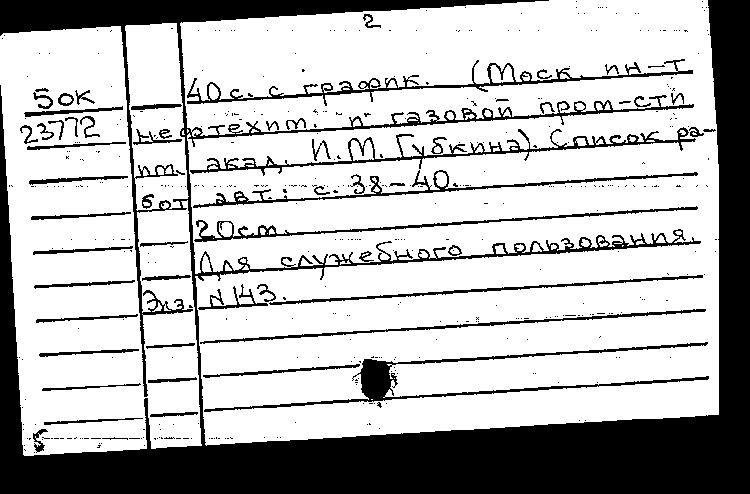 2
5ок 40с. с график. (Моск. ин-т
23772 нефтехим. и газовой пром-сти
им. акад. И.М. Губкина). Список ра-
бот авт.: с. 38-40.
20см.
Для служебного пользования.
Экз. N143.